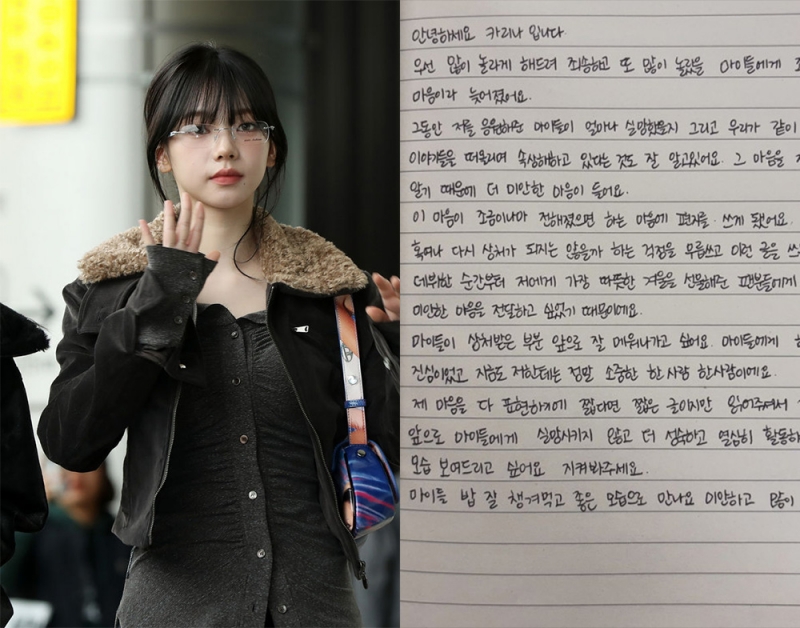 안녕하세요 카리나 입니다.
우선 많이 놀라게 해드려 죄송하고 또 많이 놀랐을 마이들에게
마음이라 늦어졌어요.
그동안 저를 응원해준 마이들이 얼마나 실망했을지 그리고 우리가 같이
이야기들을 떠올리며 속상해하고 있다는 것도 잘 알고있어요. 그 마음을
알기 때문에 더 미안한 마음이 들어요.
이 마음이 조금이나마 전해졌으면 하는 마음에 편지를 쓰게 됐어요.
혹여나 다시 상처가 되지는 않을까 하는 걱정을 무릅쓰고 이런 글을
데뷔한 순간부터 저에게 가장 따뜻한 겨울을 선물해준 팬분들에게
미안한 마음을 전달하고 싶었기 때문이에요.
마이들이 상처받은 부분 앞으로 잘 메워나가고 싶어요. 마이들에게
진심이었고 지금도 저한테는 정말 소중한 한 사람 한사람이에요.
제 마음을 다 표현하기에 짧다면 짧은 글이지만 읽어주셔서
앞으로 마이들에게 실망시키지 않고 더 성숙하고 열심히
모습 보여드리고 싶어요 지켜봐주세요.
마이들 밥 잘 챙겨먹고 좋은 모습으로 만나요 미안하고 많이